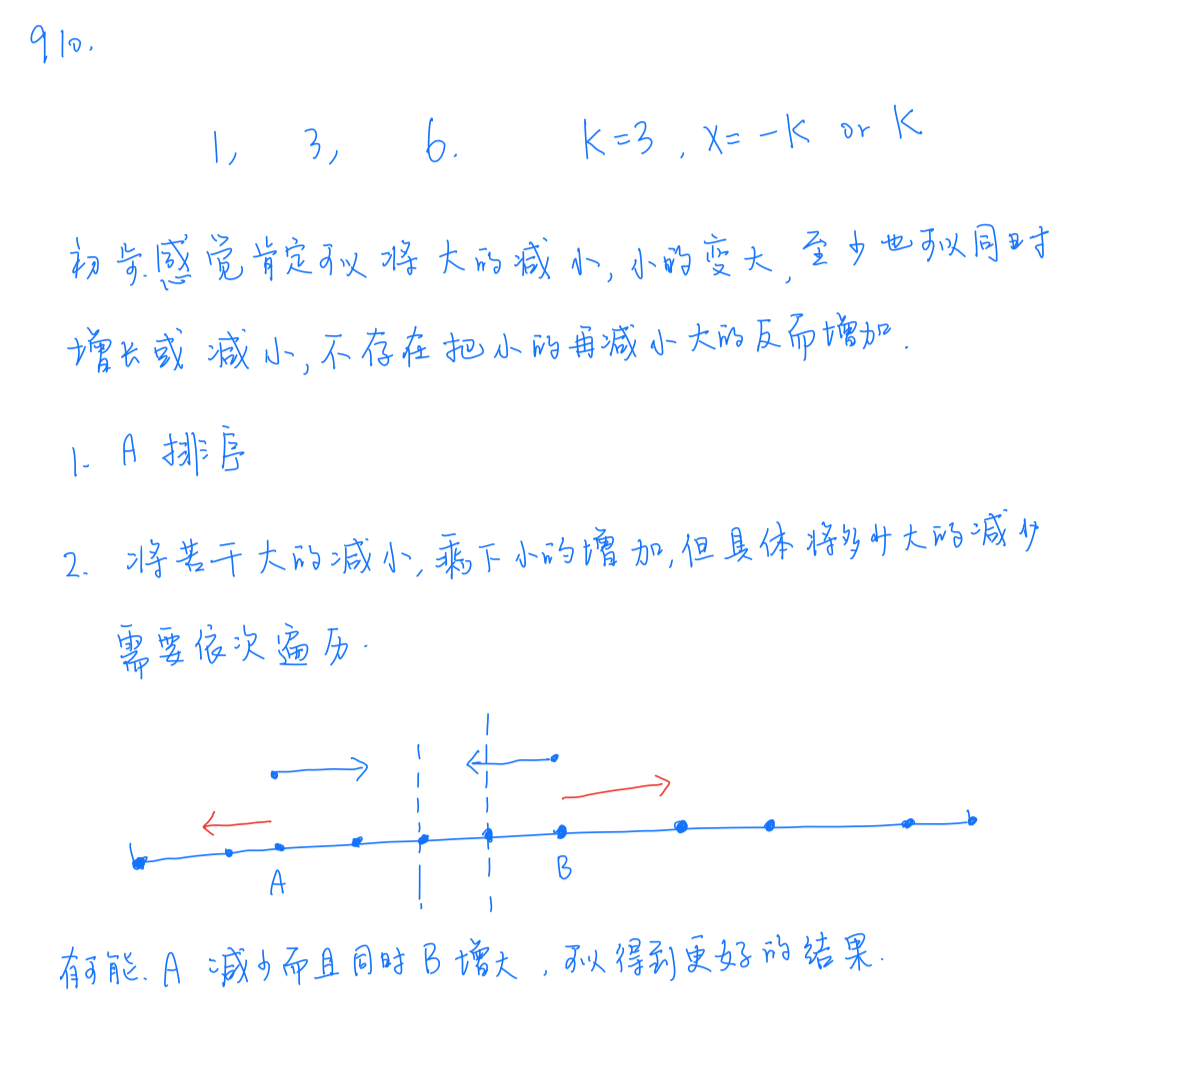 910.
1, 3, 6. K=3, x= -K or K
初步感觉肯定可以将大的减小,小的变大,至少也可以同时
增长或减小,不存在把小的再减小大的反而增加.
1. A 排序
2. 将若干大的减小,剩下小的增加,但具体将多少大的减少
需要依次遍历.
A
B
有可能. A 减少而且同时 B 增大,可以得到更好的结果.